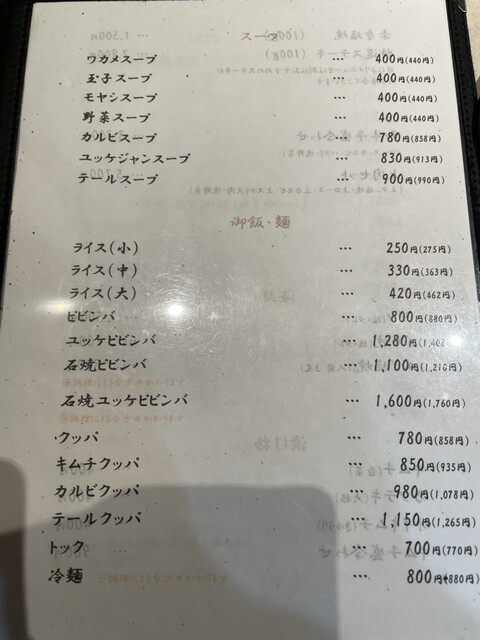 スープ
ワカメスープ … 400円(440円)
玉子スープ … 400円(440円)
モヤシスープ … 400円(440円)
野菜スープ … 400円(440円)
カルビスープ … 780円(858円)
ユッケジャンスープ … 830円(913円)
テールスープ … 900円(990円)
御飯・麺
ライス(小) … 250円(275円)
ライス(中) … 330円(363円)
ライス(大) … 420円(462円)
ビビンバ … 800円(880円)
ユッケビビンバ … 1,280円(1,408
石焼ビビンバ … 1,100円(1,210円)
※調理に15分少々かかります
石焼ユッケビビンバ … 1,600円(1,760円)
※調理に15分少々かかります
クッパ … 780円(858円)
キムチクッパ … 850円(935円)
カルビクッパ … 980円(1,078円)
テールクッパ … 1,150円(1,265円)
トック … 700円(770円)
冷麺 … 800円(880円)